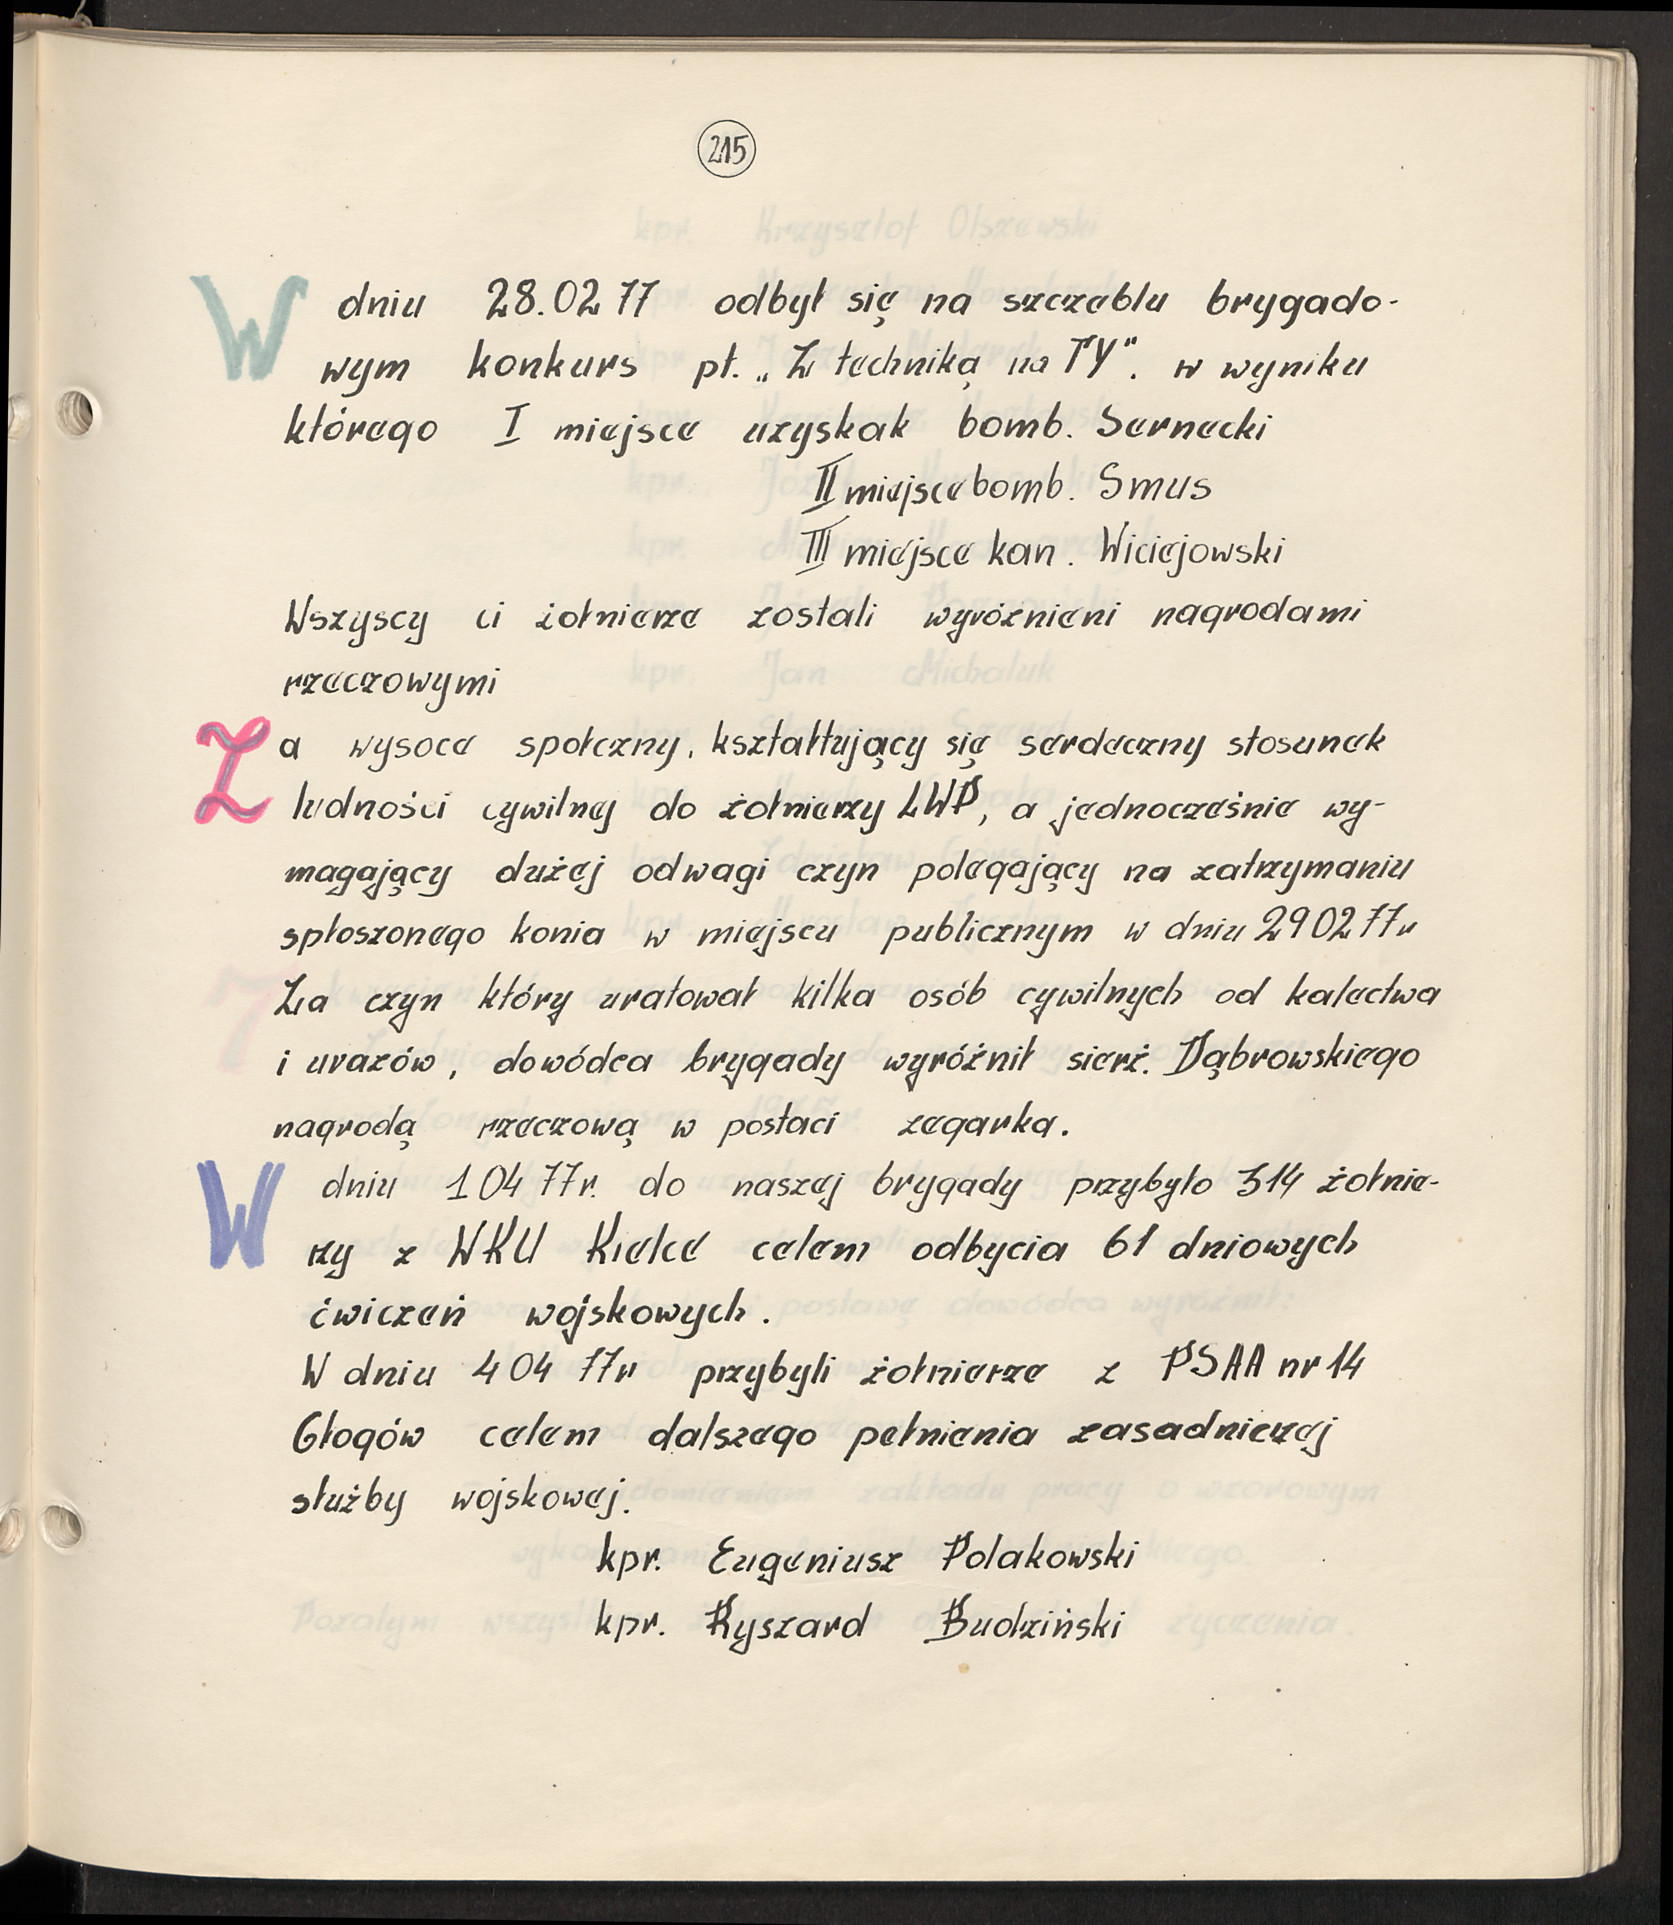 215
W dniu 28.02 77 odbył się na szczeblu brygado-
wym konkurs pt. „Z techniką na TY". w wyniku
którego I miejsce uzyskak bomb. Sernecki
II miejsce bomb. Smus
III miejsce kan. Wiciejowski
Wszyscy ci żołnierze zostali wyróżnieni nagrodami
rzeczowymi
Za wysoce społeczny, kształtujący się serdeczny stosunek
ludności cywilnej do żołnierzy LWP, a jednocześnie wy-
magający dużej odwagi czyn polegający na zatrzymaniu
spłoszonego konia w miejscu publicznym w dniu 29 02 77r
Za czyn który uratował kilka osób cywilnych od kalectwa
i urazów, dowódca brygady wyróżnił sierż. Dąbrowskiego
nagrodą rzeczową w postaci zegarka.
W dniu 1 04 77r. do naszej brygady przybyło 314 żołnie-
rzy z WKU Kielce celem odbycia 61 dniowych
ćwiczeń wojskowych.
W dniu 4 04 77r przybyli żołnierze z PSAA nr 14
Głogów celem dalszego pełnienia zasadniczej
służby wojskowej.
kpr. Eugeniusz Polakowski
kpr. Ryszard Budziński